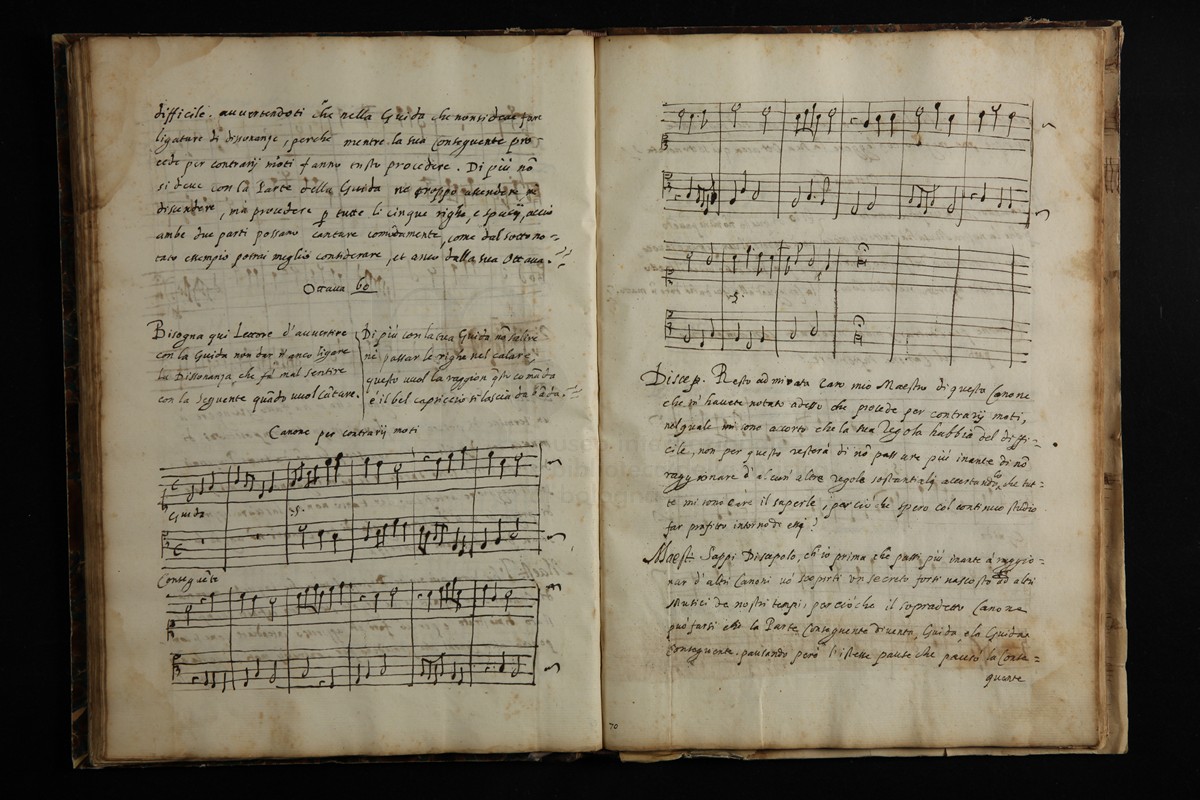 difficile. avvertendoti che nella Guida che non si deve fare
ligature di dissonanze, perche mentre la sua Conseguente pro
cede per contrarij moti fanno tristo procedere. Di più nõ
si deve con la Parte della Guida ne troppo ascendere ne
discendere, mà procedere p tutte li cinque righe, e spatij, acciò
ambe due parti possano cantare comodamente, come dal sotto no=
tato essempio potrai meglio considerare, et anco dalla sua Ottava.
Ottava
Bisogna qui Lettore d'avvertire
con la Guida non dar n'anco ligare
la Dissonanza, che fà mal sentire
con la seguente quãdo vuol cãtare.
Di più con la tua Guida nõ salire
nè passar le righe nel calare
questo vuol la raggion
è il bel capriccio si lascia da bãda.
Canone per contrarij moti
Guida
.5.
Conseguẽte
.5.
Discep. Resto admirato caro mio Maestro di questo Canone
che m'havete notato adesso che procede per contrarij moti,
nel quale mi sono accorto che la sua regola habbia del diffi=
cile, non per questo resterà di nõ passare più inante di nõ
raggionare d'alcuni altre regole sostantiali accostando che tut=
te mi sono care il saperle, perciò che spero col continuo studio
far profitto intorno de essi?
Maest. Sappi Discepolo, ch'io prima che passi più inante à raggio=
nar d'altri Canoni vò scoprirti un secreto forti nascosto ad altri
Musici de nostri tempi, perciòche il sopradetto Canone
può farsi che la Parte Conseguente diventa Guida, e la Guida
Conseguente. pausando però l'istesse pause che pausò la Conse=
quente
70